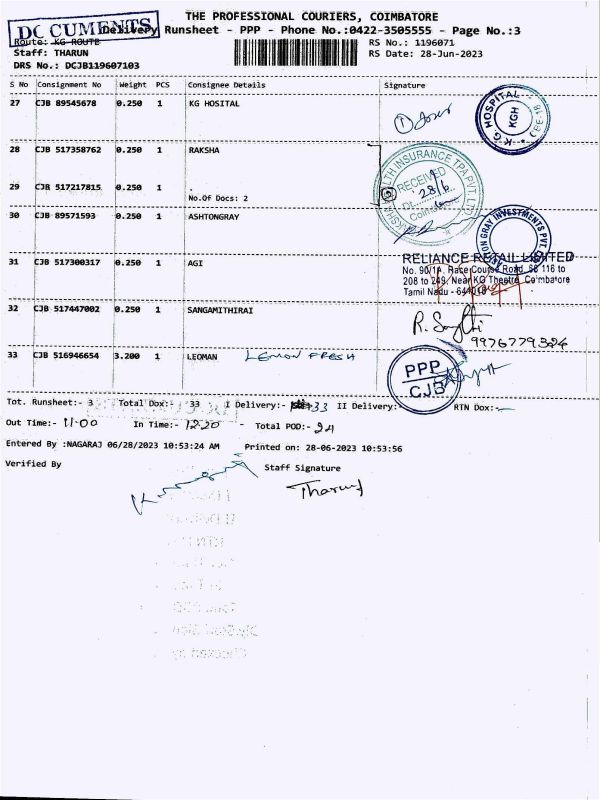 THE PROFESSIONAL COURIERS, COIMBATORE
DOCUMENTS
Delivery Runsheet - PPP - Phone No.:0422-3505555 - Page No.:3
Route: KG ROUTE
RS No.: 1196071
Staff: THARUN
RS Date: 28-Jun-2023
DRS No.: DCJB119607103
S No Consignment No Weight PCS Consignee Details Signature
27 CJB 89545678 0.250 1 KG HOSITAL
K.G. HOSPITAL
KGH
CBE-18
28 CJB 517358762 0.250 1 RAKSHA
HEALTH INSURANCE TPA PVT LTD
RECEIVED
28/6
29 CJB 517217815 0.250 1 .
No.Of Docs: 2
30 CJB 89571593 0.250 1 ASHTONGRAY
GRAY INVESTMENTS PVT
31 CJB 517300317 0.250 1 AGI
RELIANCE RETAIL LIMITED
No. 90/1A, Race Course Road, 68 116 to
208 to 249, Near KG Theatre, Coimbatore
Tamil Nadu - 641018
32 CJB 517447002 0.250 1 SANGAMITHIRAI
9976779324
33 CJB 516946654 3.200 1 LEOMAN LEMON FRESH
PPP
CJB
Tot. Runsheet:- 3 Total Dox:- 33 I Delivery:- 33 II Delivery:- RTN Dox:-
Out Time:- 11-00 In Time:- 12.20 - Total POD:- 24
Entered By :NAGARAJ 06/28/2023 10:53:24 AM Printed on: 28-06-2023 10:53:56
Verified By Staff Signature
Tharun